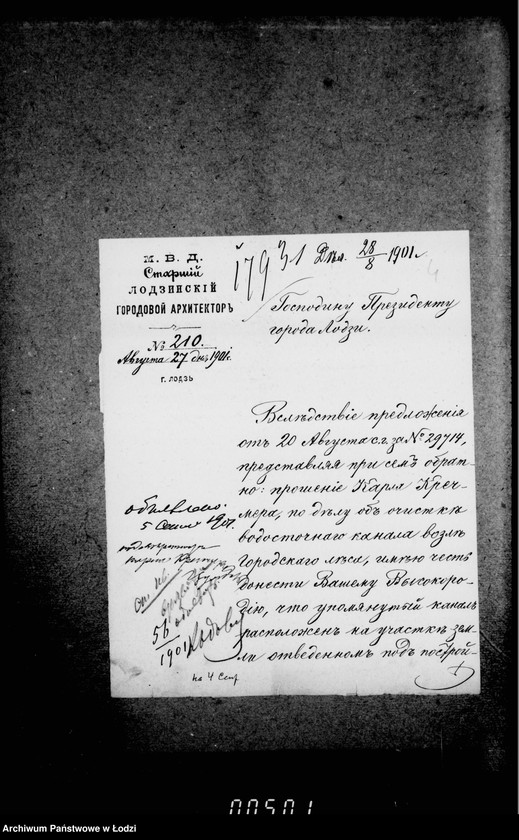 М. В. Д.
Старшій
ЛОДЗИНСКІЙ
ГОРОДОВОЙ АРХИТЕКТОРЪ
№ 210
Августа 27 дня 1901 г.
Г. ЛОДЗЬ
17931 28/8 1901 г.
Господину Президенту
города Лодзи.
Вслѣдствіе предложенія
отъ 20 Августа с.г. за № 29714,
представляя при семъ обрат-
но: прошеніе Карла Креч-
мера, по дѣлу объ очисткѣ
водосточнаго канала возлѣ
городскаго лѣса, имѣю честь
донести Вашему Высокоро-
дію, что упомянутый каналъ
расположенъ на участкѣ зем-
ли отведенномъ подъ построй-
объявлено
5 1901.
1901
на 4 Сент
00501
Archiwum Państwowe w Łodzi